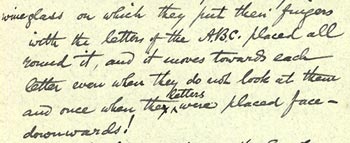 wineglass on which they 'put their' fingers
with the letters of the ABC. placed all
round it, and it moves towards each
letter even when they do not look at them
and once when the letters were placed face-
downwards!